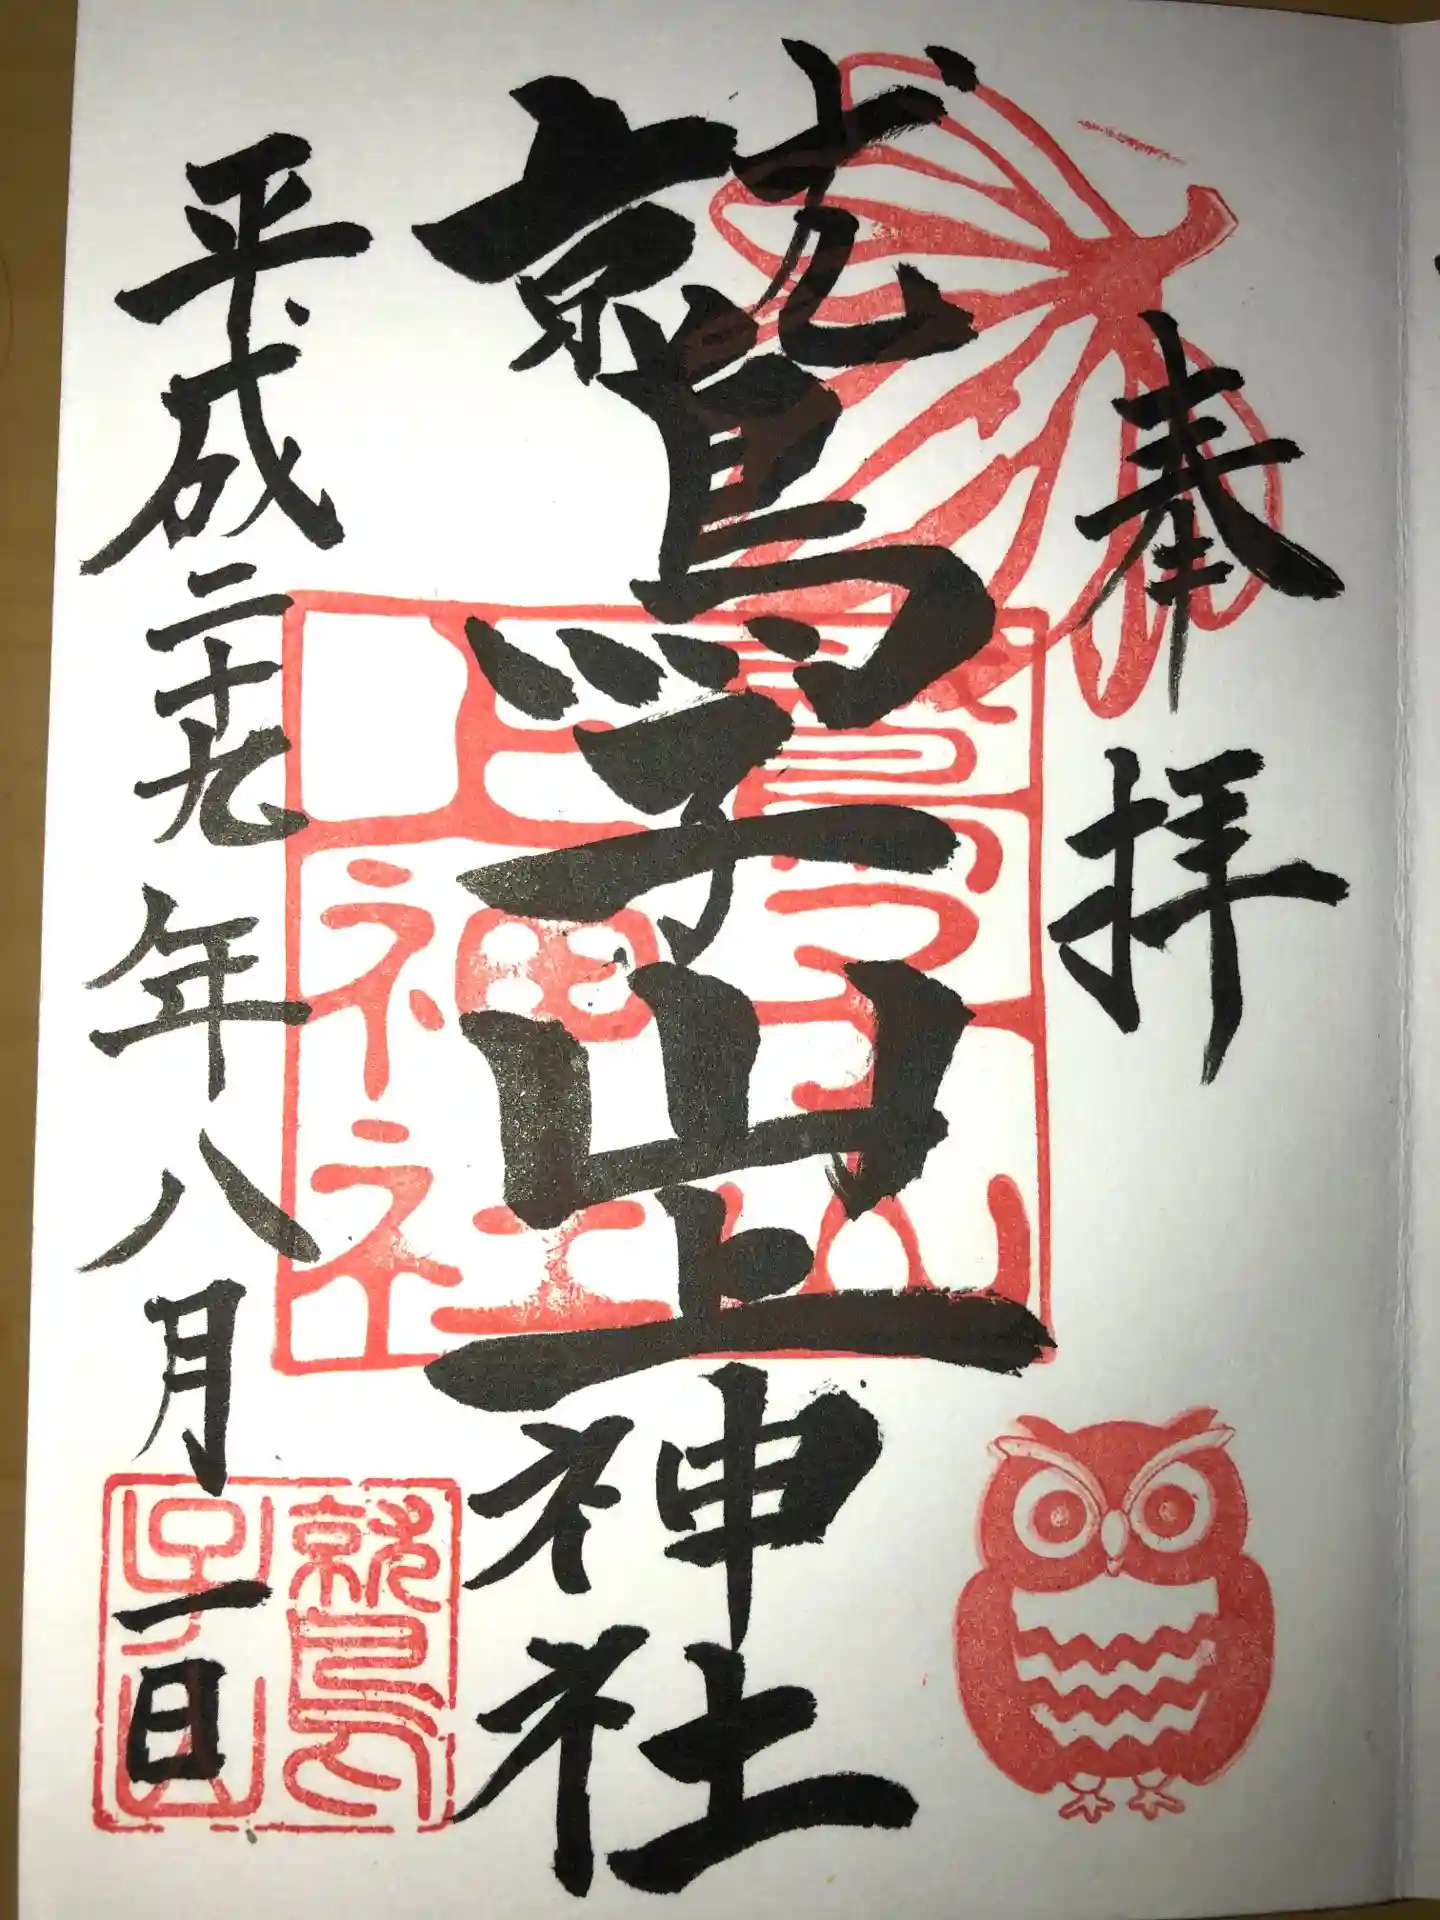 奉拝
鷲子山上神社
平成二十九年八月一日
鷲子山上神社
鷲子山